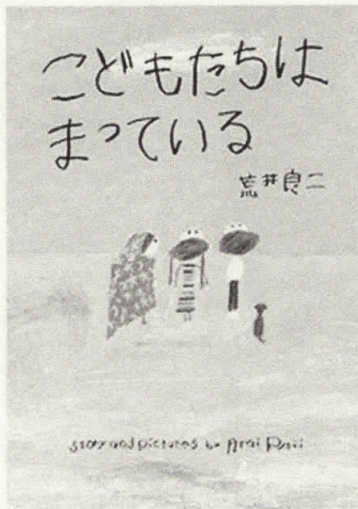 こどもたちは
まっている
荒井良二
story and pictures by Arai Ryoji